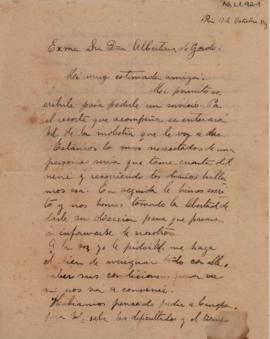 Rio 17 de Octubre
Exma Sra Dna Albertina de Gordo
Mi muy estimada amiga:
Me permito es-
cribirle para pedirle un servicio. Por
el recorte que acompaño se enterará
Vd. de la molestia que le voy a dar
Estamos lo mas necesitados de una
persona seria que tome cuenta del
nené y
nos era. En seguida le hemos escri-
to y nos hemos tomado la libertad de
darle su direccion para que pasara
a informarse de nosotros
Y la vez yo le pidiría me haga
el bien de averiguar todo con ella,
saber sus condiciones para ver
si nos va a convenir.
Habiamos pensado pedir a
pero Vd. sabe las dificultades y el tiempo